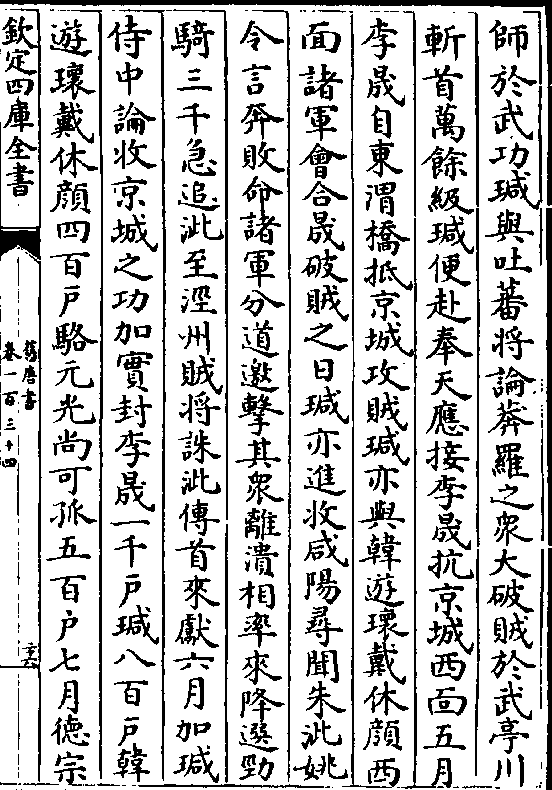 師於武功瑊與吐蕃將論莽羅之衆大破賊於武亭川
斬首萬餘級瑊便赴奉天應接李晟抗京城西面五月
李晟自東渭橋抵京城攻賊瑊亦與韓遊瓌戴休顔西
面諸軍會合晟破賊之日瑊亦進收咸陽尋聞朱泚姚
令言奔敗命諸軍分道邀擊其衆離潰相率來降選勁
騎三千急追泚至涇州賊將誅泚傳首來獻六月加瑊
侍中論收京城之功加實封李晟一千戸瑊八百戸韓
遊瓌戴休顔四百戸駱元光尚可孤五百户七月德宗
欽定四庫全書
舊唐書
卷一百三十四